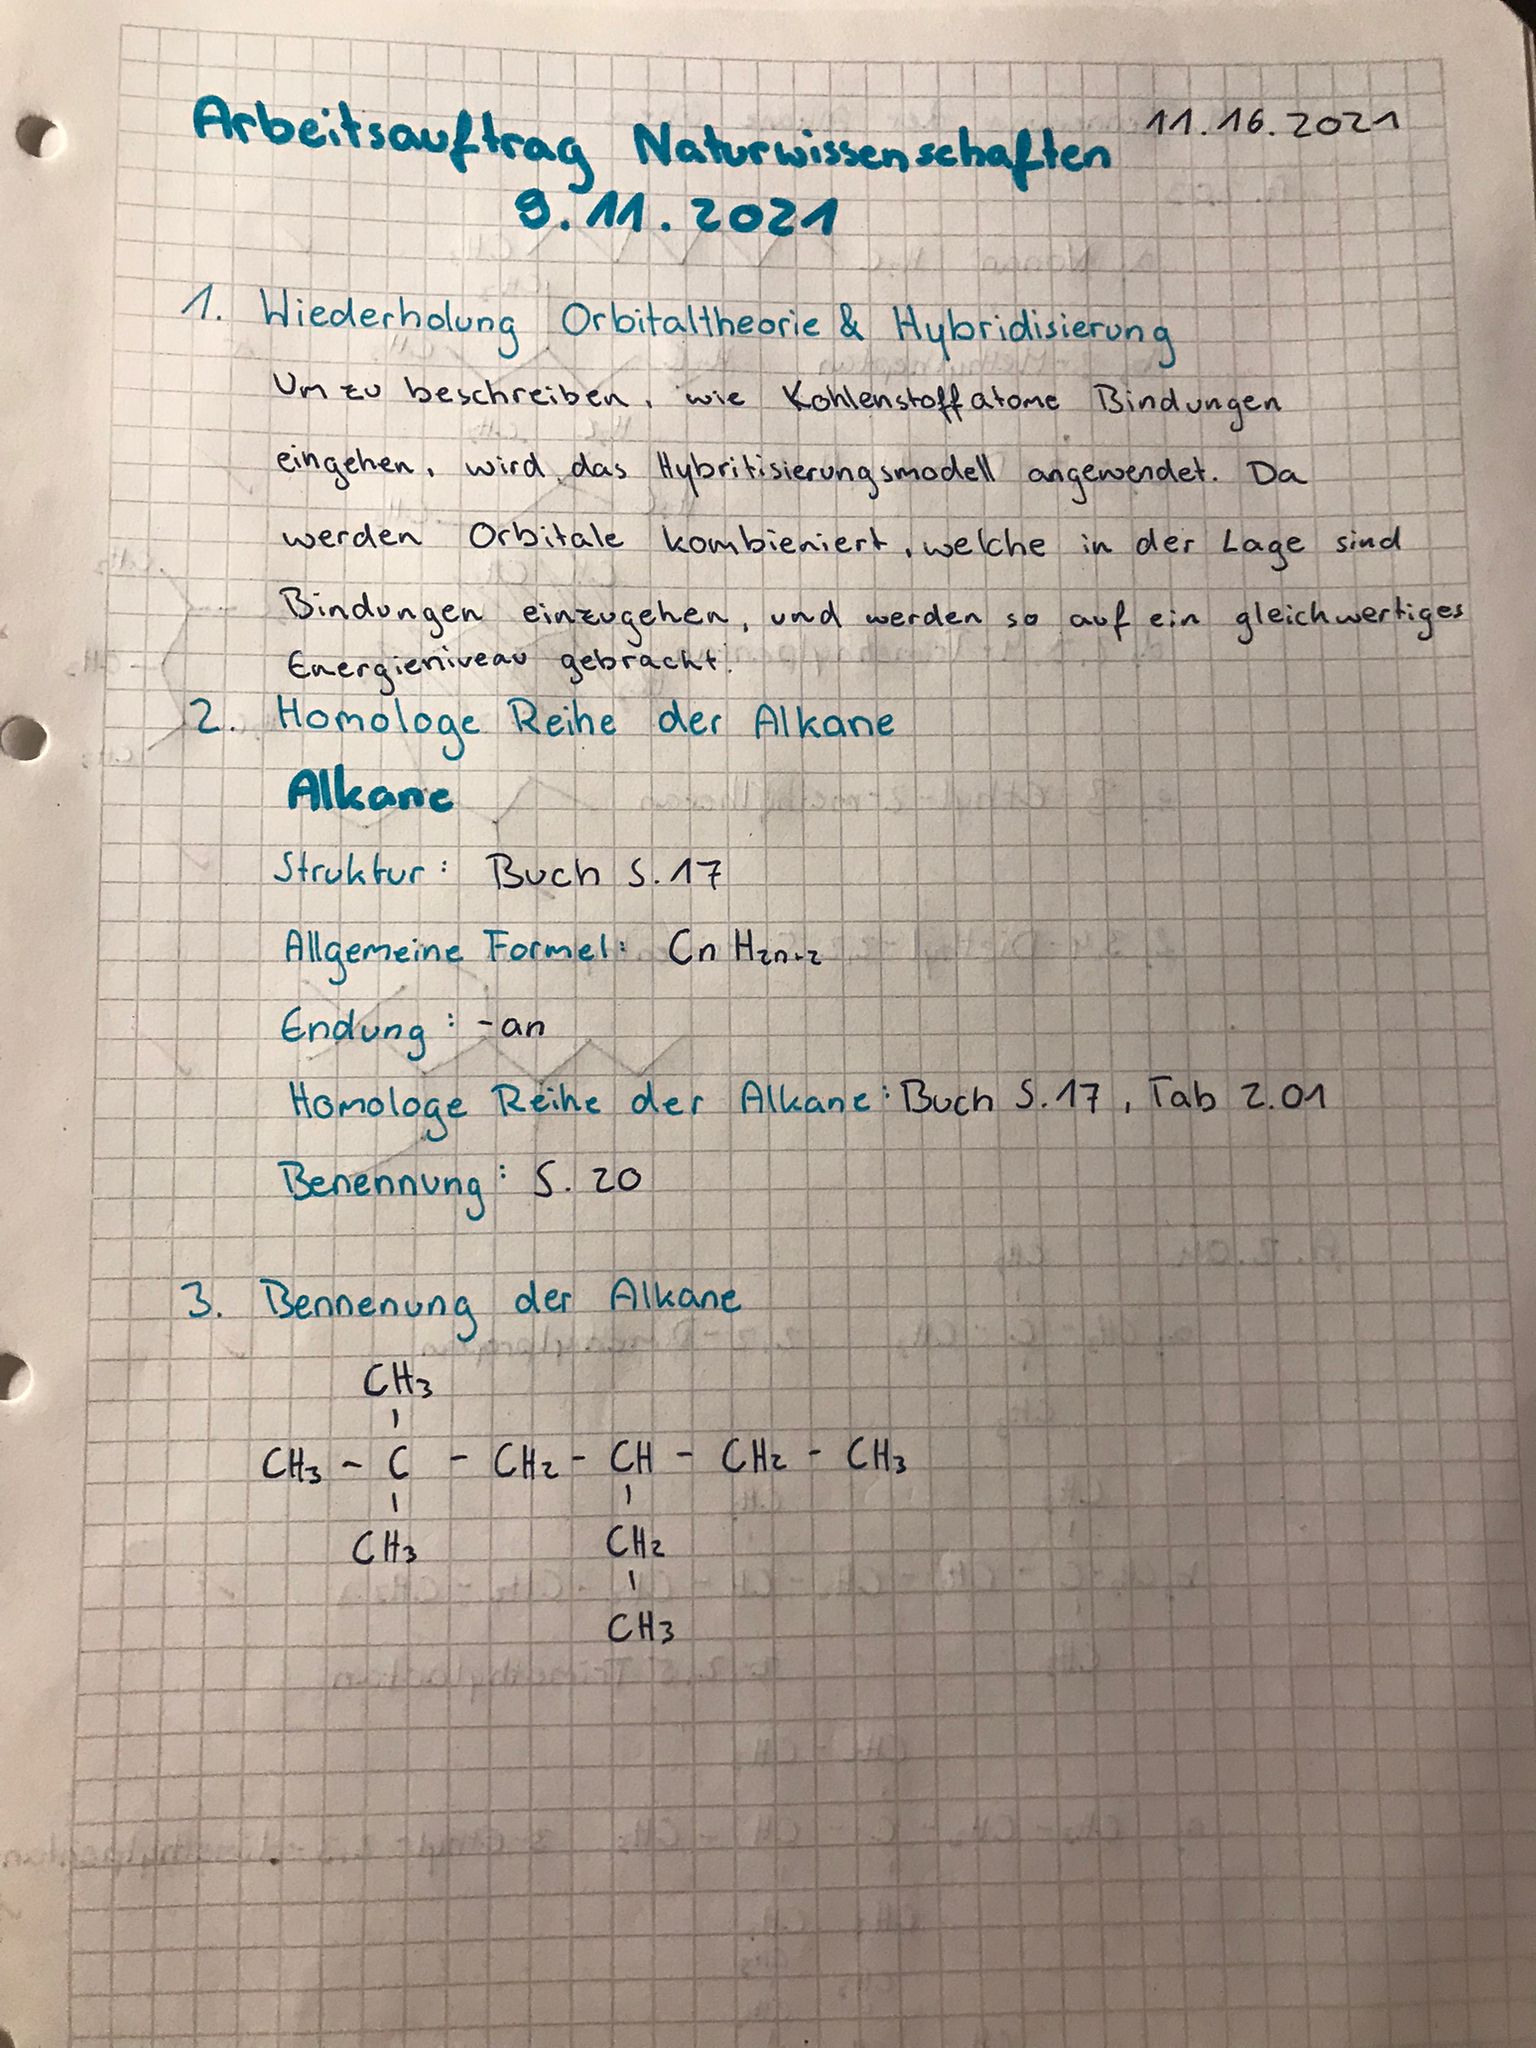 Arbeitsauftrag Naturwissenschaften 11.16.2021
9.11.2021
1. Wiederholung Orbitaltheorie & Hybridisierung
Um zu beschreiben, wie Kohlenstoffatome Bindungen
eingehen, wird das Hybritisierungsmodell angewendet. Da
werden Orbitale kombieniert, welche in der Lage sind
Bindungen einzugehen, und werden so auf ein gleichwertiges
Energieniveau gebracht.
2. Homologe Reihe der Alkane
Alkane
Struktur: Buch S. 17
Allgemeine Formel: Cn H2n+2
Endung: -an
Homologe Reihe der Alkane: Buch S. 17, Tab 2.01
Benennung: S. 20
3. Bennenung der Alkane
CH3
CH3 - C - CH2 - CH - CH2 - CH3
CH3 CH2
CH3